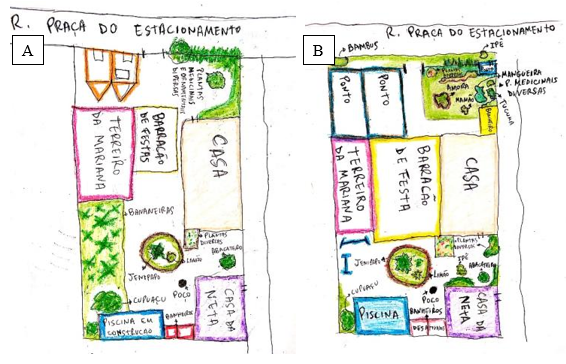 R. PRAÇA DO ESTACIONAMENTO
A
PLANTAS
MEDICINAIS
E ORNAMENTAIS
DIVERSAS
TERREIRO
DA MARIANA
BARRACÃO
DE FESTAS
CASA
BANANEIRAS
PLANTAS
DIVERSAS
ABACATEIRO
JENIPAPO
LIMÃO
CUPUAÇU
POÇO
BANHEIROS
PISCINA EM
CONSTRUÇÃO
CASA DA
NETA
R. PRAÇA DO ESTACIONAMENTO
B
BAMBUS
IPÊ
PONTO
PONTO
AMORA
MAMÃO
MANGUEIRA
P. MEDICINAIS
DIVERSAS
TUCUMÃ
BANHEIRO
TERREIRO
DA MARIANA
BARRACÃO
DE FESTA
CASA
PLANTAS
DIVERSAS
IPÊ
ABACATEIRO
JENIPAPO
LIMÃO
CUPUAÇU
POÇO
BANHEIROS
PISCINA
CASA DA
NETA